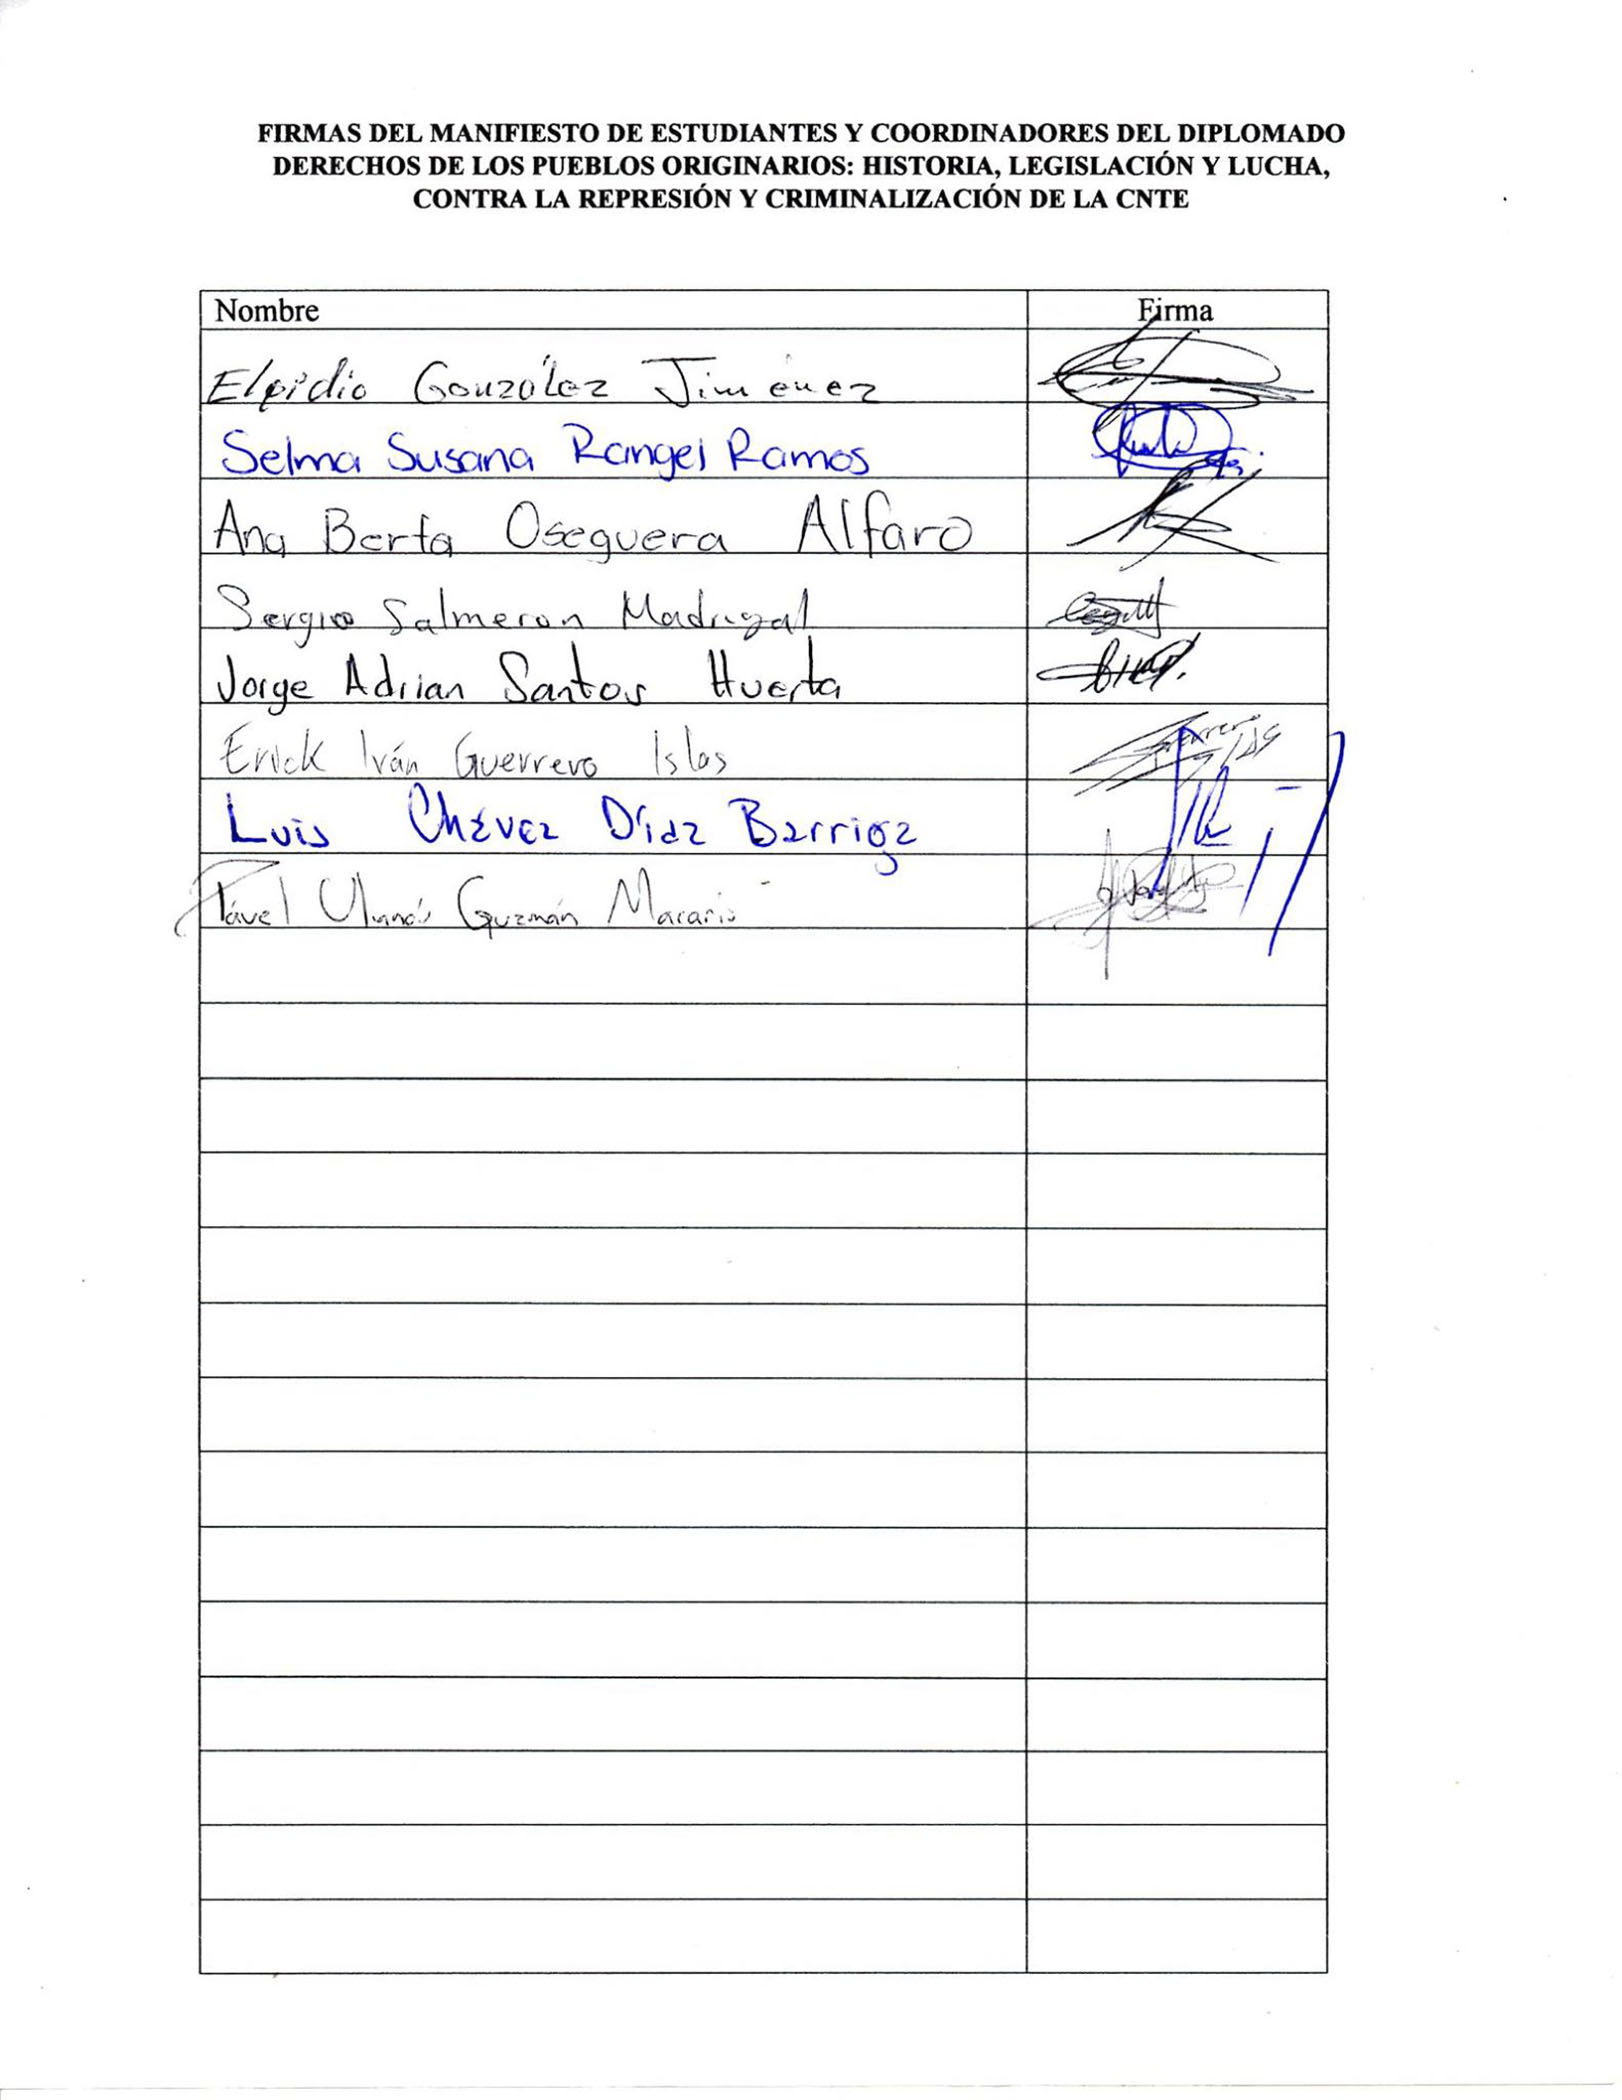 FIRMAS DEL MANIFIESTO DE ESTUDIANTES Y COORDINADORES DEL DIPLOMADO
DERECHOS DE LOS PUEBLOS ORIGINARIOS: HISTORIA, LEGISLACIÓN Y LUCHA,
CONTRA LA REPRESIÓN Y CRIMINALIZACIÓN DE LA CNTE
Nombre Firma
Elpidio González Jiménez
Selma Susana Rangel Ramos
Ana Berta Oseguera Alfaro
Sergio Salmeron Madrigal
Jorge Adrian Santos Huerta
Erick Iván Guerrero Islas
Luis Chávez Díaz Barriga
Pável Guzmán Macario